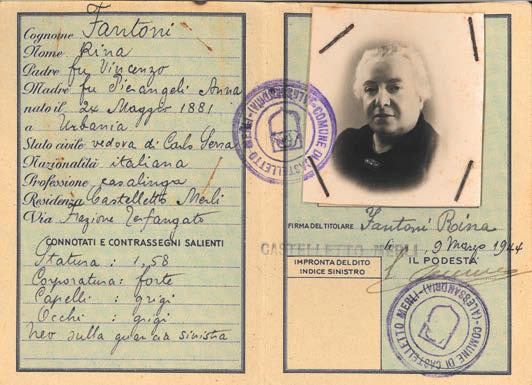 Cognome Fantoni
Nome Rina
Padre fu Vincenzo
Madre fu Pierangeli Anna
nato il 24 Maggio 1881
a Urbania
Stato civile vedova di Carlo
Nazionalità italiana
Professione casalinga
Residenza Castelletto Merli
Via Frazione Terfangato
CONNOTATI E CONTRASSEGNI SALIENTI
Statura : 1,58
Corporatura: forte
Capelli : grigi
Occhi : grigi
neo sulla guancia sinistra
COMUNE DI CASTELLETTO MERLI (ALESSANDRIA)
FIRMA DEL TITOLARE Fantoni Rina
CASTELLETTO MERLI li 9 Marzo 1944
IMPRONTA DEL DITO
INDICE SINISTRO
IL PODESTÀ
COMUNE DI CASTELLETTO MERLI (ALESSANDRIA)